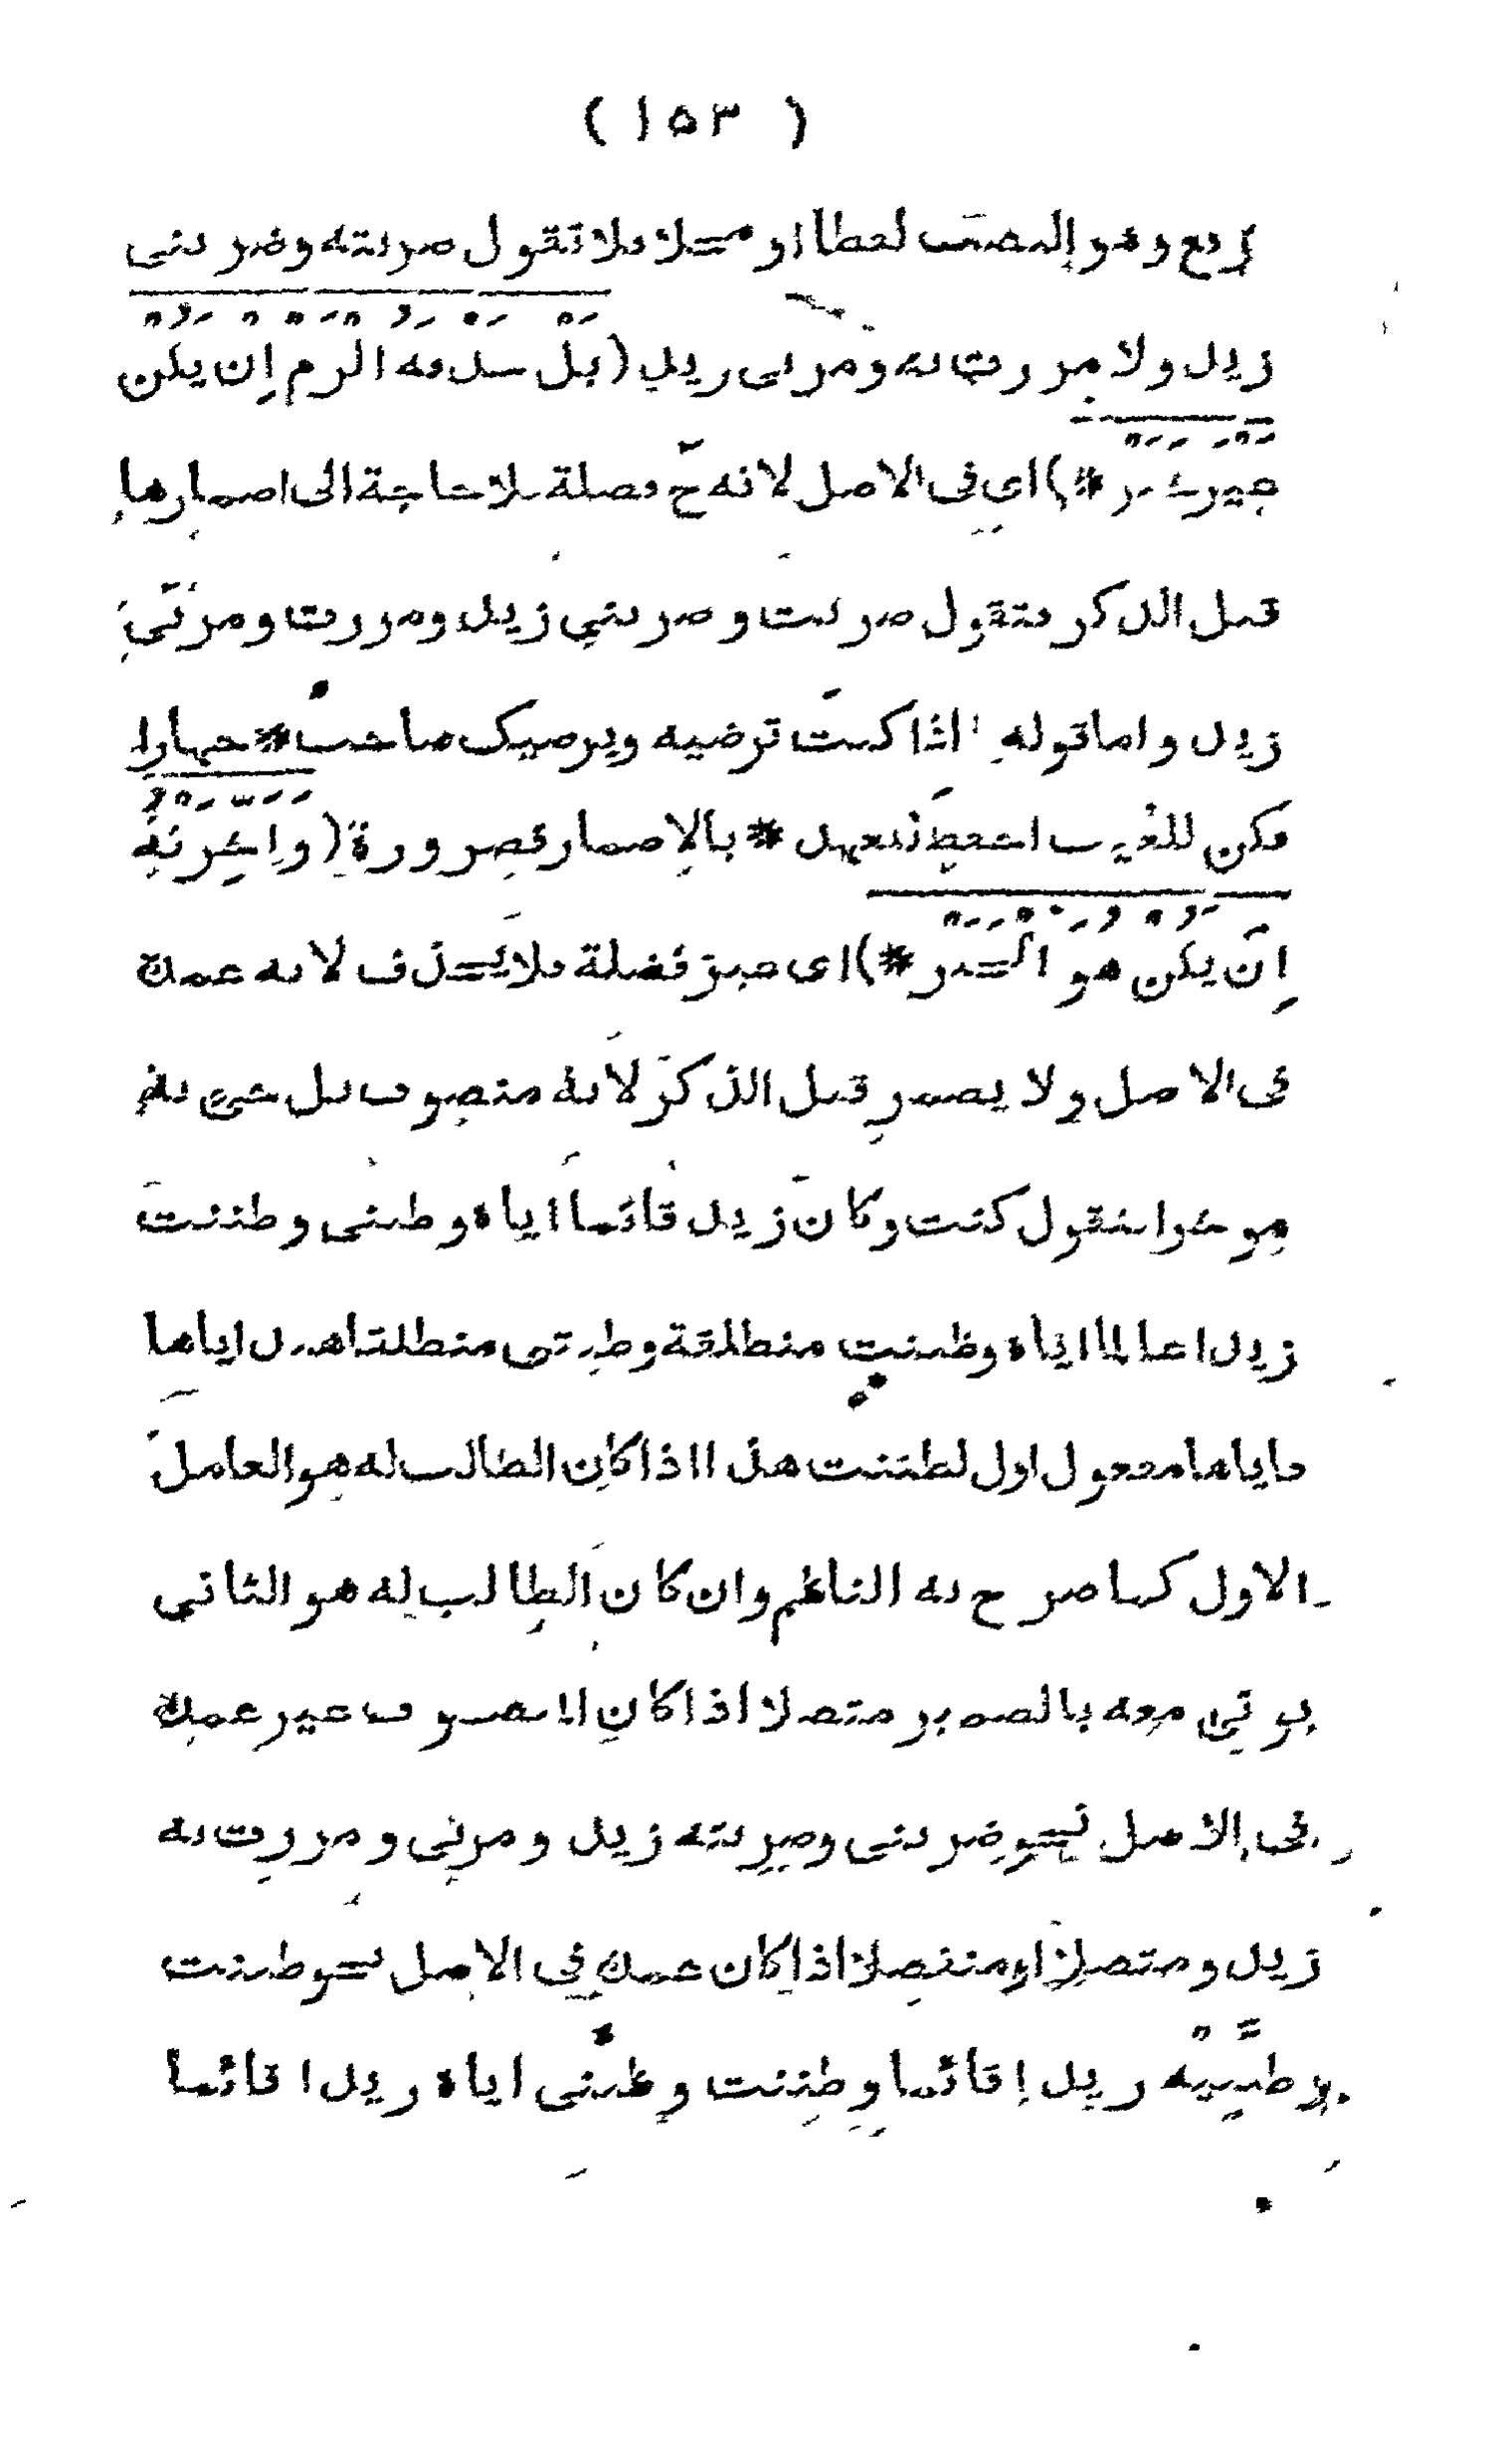 ( ١٥٣ )
رفع وهو النصب لفظا او محلا فلا تقول ضربته وضربنى
زيد ولا مررت به ومر بى زيد (بل حذفه الزم ان يكن
غير خبر *) اى فى الاصل لانه ح فضلة فلا حاجة الى اضمارها
قبل الذكر فتقول ضربت وضربني زيد ومررت ومر بي
زيد واما قوله اذا كنت ترضيه ويرضيك صاحب * جهارا
فكن للغيب احفظ للعهد * بالاضمار فضرورة (واخرنه
ان يكن هو الخبر *) اى عير فضلة فلا يحذف لانه عمدة
فى الاصل ولا يضمر قبل الذكر لانه منصوب بل جئ به
موخرا فتقول كنت وكان زيد قائما اياه وظننى وظننت
زيدا عالما اياه وظننت منطلقة وظنتنى منطلقا هند اياها
فاياها مفعول اول لظننت هذا اذا كان الطالب له هو العامل
الاول كما صرح به الناظم وان كان الطالب له هو الثاني
يوتى معه بالضمير متصلا اذا كان المنصوب غير عمدة
فى الاصل نحو ضربنى وضربته زيد ومر بى ومررت به
زيد ومتصلا او منفصلا اذا كان عمدة فى الاصل نحو ظننت
وظننيه زيدا قائما وظننت وظننى اياه زيدا قائما